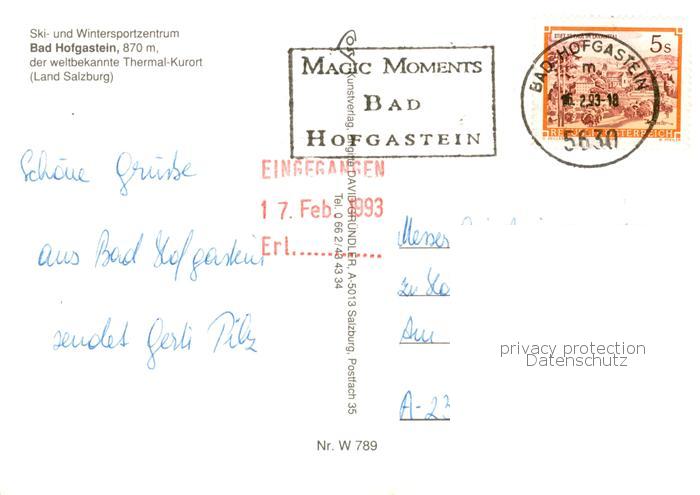 Ski- und Wintersportzentrum
Bad Hofgastein, 870 m,
der weltbekannte Thermal-Kurort
(Land Salzburg)
MAGIC MOMENTS
BAD
HOFGASTEIN
5s
REPUBLIK ÖSTERREICH
BAD HOFGASTEIN
m
16.2.93-18
5630
EINGEGANGEN
17. Feb. 1993
Erl.
Schöne Grüße
aus Bad Hofgastein
sendet Gerti Pilz
Kunstverlag, Brigitte DAVID-GRÜNDLER, A-5013 Salzburg, Postfach 35
Tel. 0 66 2/43 43 34
Messer
zu Ha
Am
A-23
privacy protection
Datenschutz
Nr. W 789